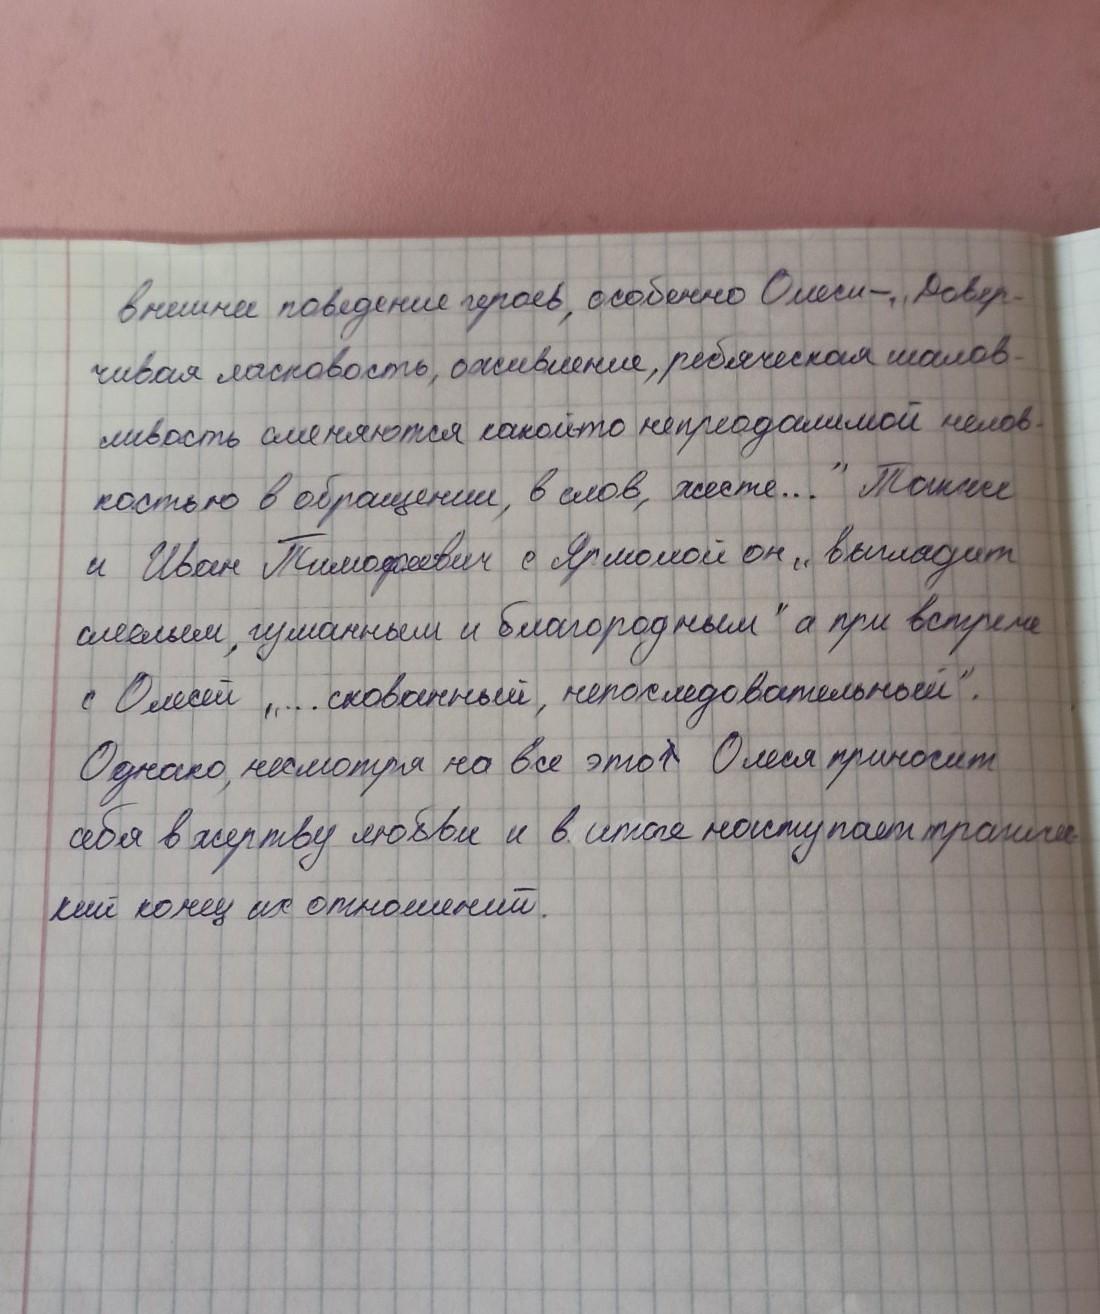 внешнее поведение героев, особенно Олеси – „Довер-
чивая ласковость, оживление, ребяческая шалов-
ливость сменяются какой-то непреодолимой нелов-
костью в обращении, в слов, жесте..." Также
и Иван Тимофеевич с Ярмолой он „выглядит
смелым, гуманным и благородным" а при встрече
с Олесей „... скованный, непоследовательный".
Однако, несмотря на все это Олеся приносит
себя в жертву любви и в итоге наступает трагичес
кий конец их отношений.